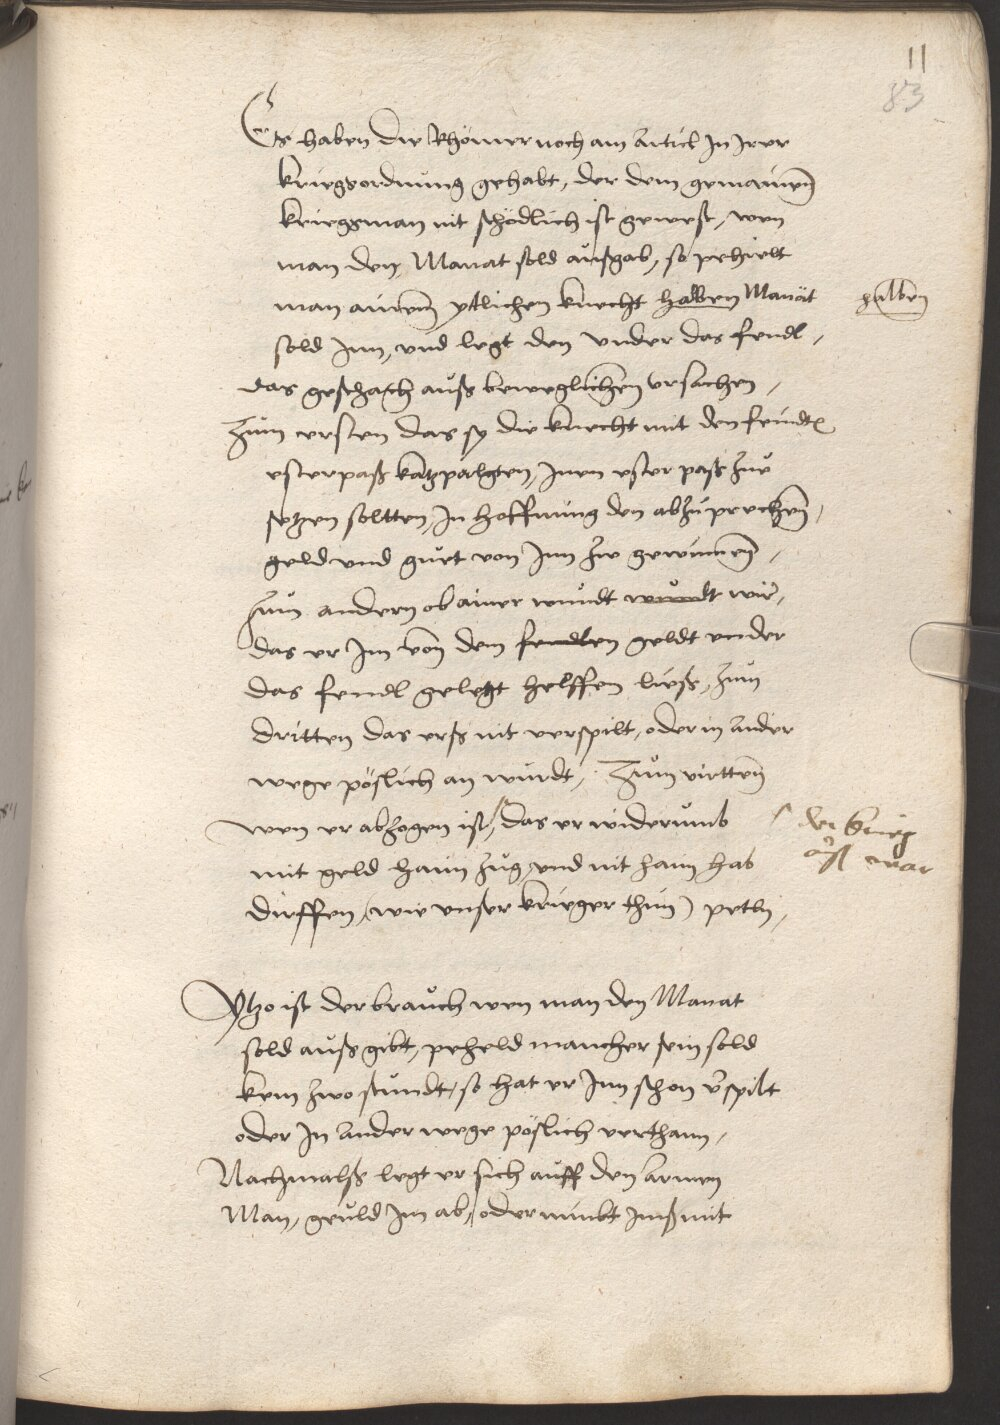 11
83
Es haben die Rhömer noch am Articl In Irer
kriegsordnung gehabt, der dem gemainen
kriegsman nit schödlich ist gewest, wen
man den Manat sold außgab, so pehielt
man ainem ytlichen knecht halben Manat halben
sold Inn, und legt den under das fendl,
das geschach auß beweglichen ursachen,
Zum ersten das sy die knecht mit den feindt
ester paß katzpalgten, Inen ester paß zue
setzen soltten, In hoffnung den abzuprechen,
geld und guet von Inn zw gewinnen,
Zum andern ob ainer wundt wundt wir,
das er Im von dem fendlen geldt under
das fendl gelegt helffen ließ, Zum
dritten das erß nit verspilt, oder in ander
wege pöslich an wurdt, Zum virtten
wen er abzogen ist, das er widerumb der krieg
mit geld haim zug, und nit haim hab auß war
dirffen, (wie unser krieger thun) petln,
Ytzo ist der brauch wen man den Manat
sold auß gibt, peheld mancher sein sold
kem zwo stundt, so hat er Inn schon verspilt
oder In ander wege pöslich verthann,
Nachmalß legt er sich auff den armen
Man, geuld Im ab, oder nimbt Imß mit